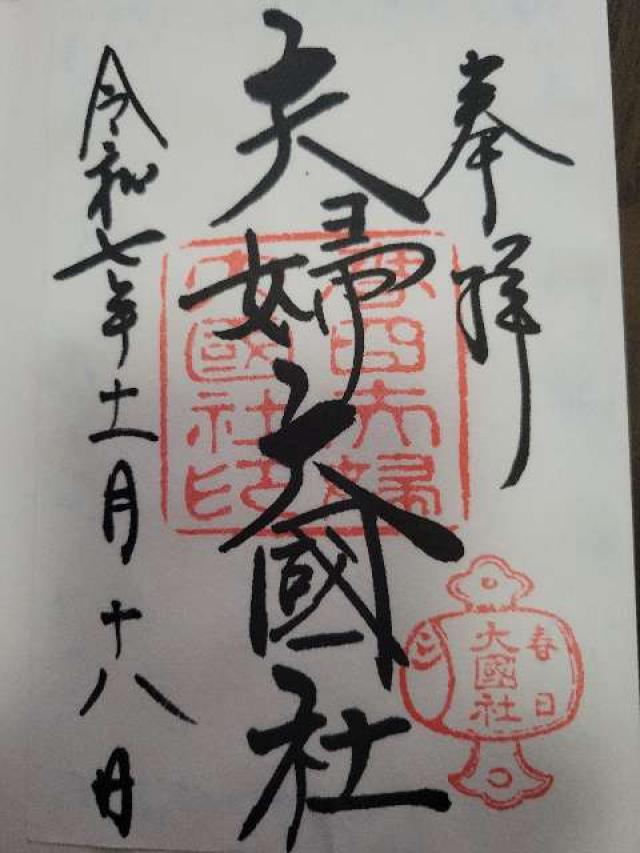 奉拝
夫婦大國社
春日夫婦
大國社印
春日
大國社
令和七年十一月十八日